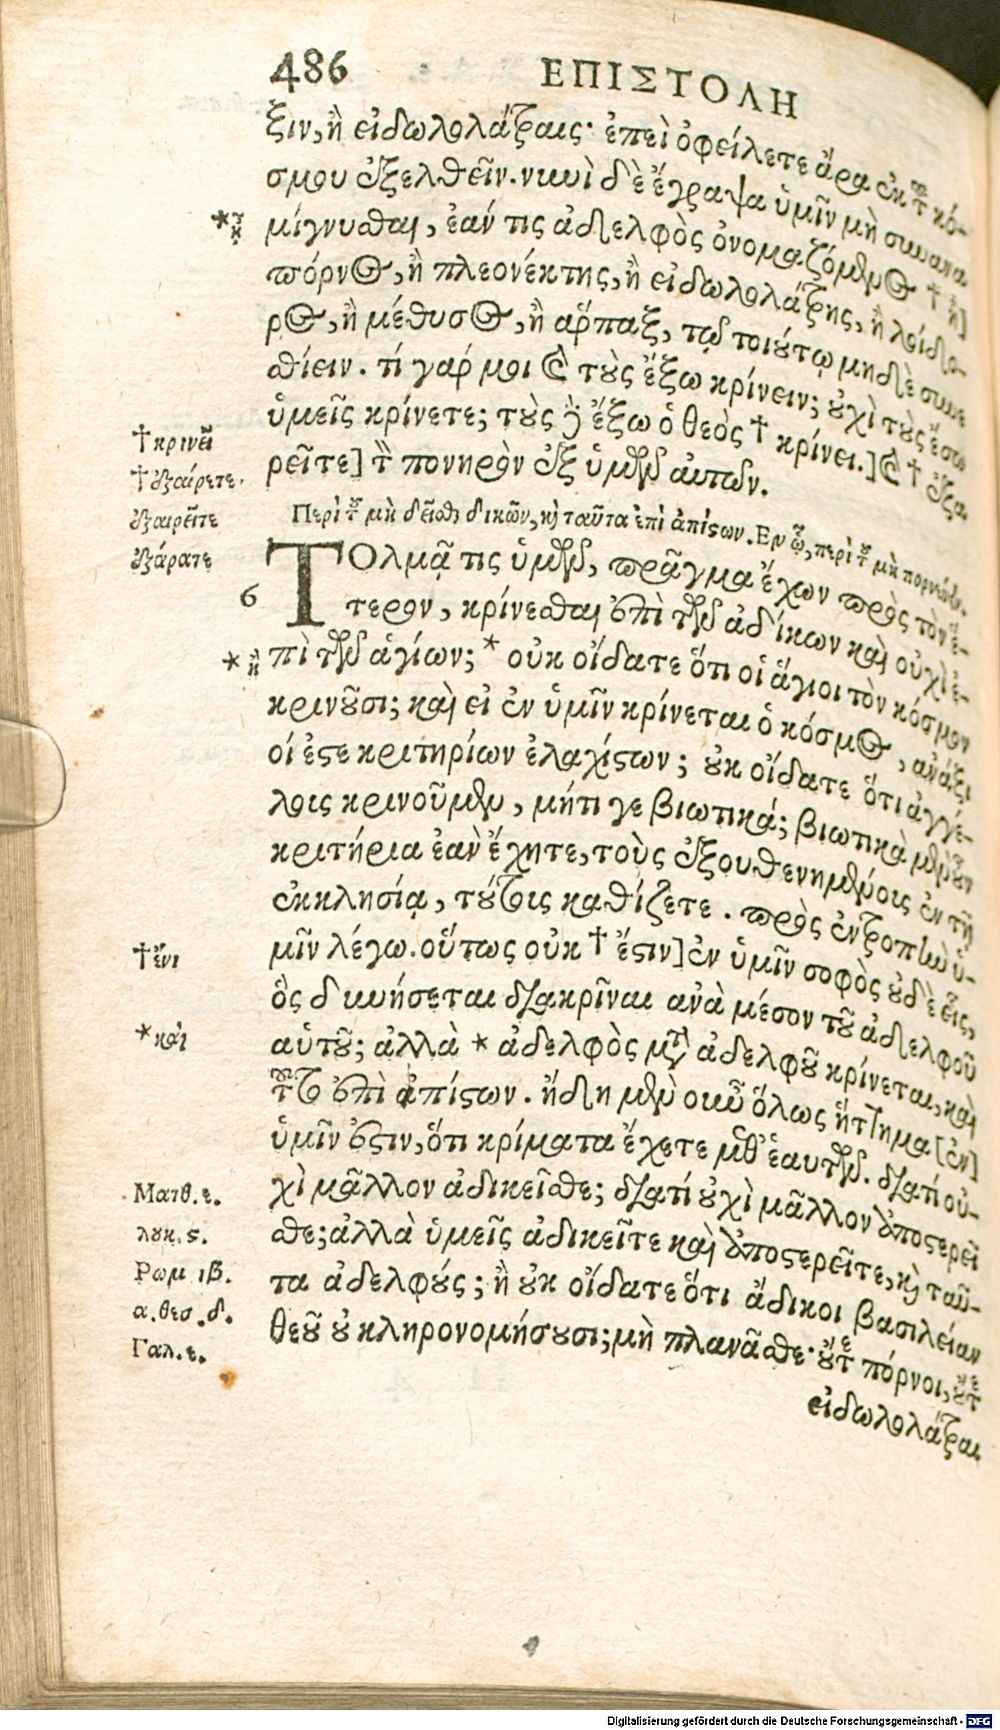 486 ΕΠΙΣΤΟΛΗ
ξιν, ἢ εἰδωλολάτραις· ἐπεὶ ὀφείλετε ἄρα ἐκ τοῦ κό-
σμου ἐξελθεῖν. νυνὶ δὲ ἔγραψα ὑμῖν μὴ συνανα
*καὶ
μίγνυσθαι, ἐάν τις ἀδελφὸς ὀνομαζόμενος † ἢ]
πόρνος, ἢ πλεονέκτης, ἢ εἰδωλολάτρης, ἢ λοίδο-
ρος, ἢ μέθυσος, ἢ ἅρπαξ, τῷ τοιούτῳ μηδὲ συνε
σθίειν. τί γάρ μοι καὶ τοὺς ἔξω κρίνειν; οὐχὶ τοὺς ἔσω
ὑμεῖς κρίνετε; τοὺς δὲ ἔξω ὁ θεὸς † κρίνει.] καὶ † ἐξα
†κρινεῖ
ρεῖτε] τὸν πονηρὸν ἐξ ὑμῶν αὐτῶν.
†ἐξαίρετε.
ἐξαιρεῖτε
ἐξάρατε
Περὶ τοῦ μὴ δεῖσθαι δικῶν, καὶ ταῦτα ἐπὶ ἀπίστων. Εν ᾧ, περὶ τοῦ μὴ πορνεύειν.
6
ΤΟλμᾷ τις ὑμῶν, πρᾶγμα ἔχων πρὸς τὸν ἕ-
τερον, κρίνεσθαι ἐπὶ τῶν ἀδίκων καὶ οὐχὶ ἐ-
*ἢ
πὶ τῶν ἁγίων; * οὐκ οἴδατε ὅτι οἱ ἅγιοι τὸν κόσμον
κρινοῦσι; καὶ εἰ ἐν ὑμῖν κρίνεται ὁ κόσμος, ἀνάξι
οί ἐστε κριτηρίων ἐλαχίστων; οὐκ οἴδατε ὅτι ἀγγέ-
λοις κρινοῦμεν, μήτι γε βιωτικά; βιωτικὰ μὲν οὖν
κριτήρια ἐὰν ἔχητε, τοὺς ἐξουθενημένοις ἐν τῇ
ἐκκλησίᾳ, τούτοις καθίζετε. πρὸς ἐντροπὴν ὑ-
μῖν λέγω. οὕτως οὐκ † ἔστιν] ἐν ὑμῖν σοφὸς οὐδὲ εἷς,
†ἔνι
ὃς δυνήσεται διακρῖναι ἀνὰ μέσον τοῦ ἀδελφοῦ
αὐτοῦ; ἀλλὰ * ἀδελφὸς μετὰ ἀδελφοῦ κρίνεται, καὶ
*καὶ
τοῦτο ἐπὶ ἀπίστων. ἤδη μὲν οὖν ὅλως ἥττημα [ἐν]
ὑμῖν ἐστιν, ὅτι κρίματα ἔχετε μεθ' ἑαυτῶν. διατί οὐ-
χὶ μᾶλλον ἀδικεῖσθε; διατί οὐχὶ μᾶλλον ἀποστερεῖ
Ματθ. ε.
σθε; ἀλλὰ ὑμεῖς ἀδικεῖτε καὶ ἀποστερεῖτε, καὶ ταῦ-
λουκ. ς.
τα ἀδελφούς; ἢ οὐκ οἴδατε ὅτι ἄδικοι βασιλείαν
Ρωμ ιβ.
α. θεσ. δ.
θεοῦ οὐ κληρονομήσουσι; μὴ πλανᾶσθε· οὔτε πόρνοι, οὔτε
Γαλ. ε.
εἰδωλολάτραι
Digitalisierung gefördert durch die Deutsche Forschungsgemeinschaft - DFG